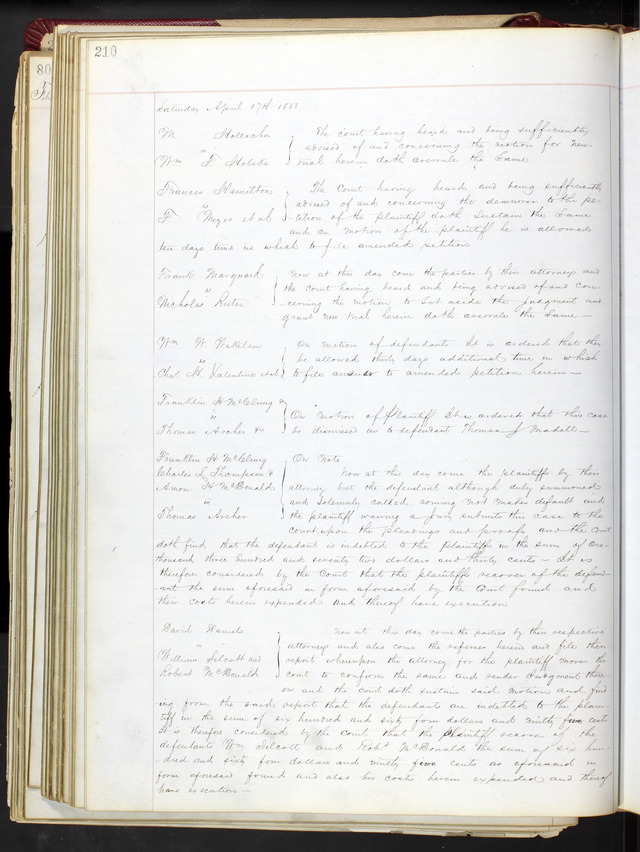 210
80
Saturday April 17th
M Hollacher } The court having heard and being sufficiently
vs advised of and concerning the motion for new
Wm F. Holske trial herein doth overrule the Same
Francis Hamilton } The Court having heard and being sufficiently
vs advised of and concerning the demurrer to the pe-
F Meyer et al tition of the plaintiff doth Sustain the Same
and on motion of the plaintiff he is allowed
ten days time in which to file amended petition
Frank Marquard } Now at this day come the parties by their attorneys and
vs the court having heard and being advised of and con-
Nicholas Reiter cerning the motion to Set aside the judgment and
grant new trial herein doth overrule the Same —
Wm W Wakelam } On motion of defendants It is ordered that they
vs be allowed thirty days additional time in which
Chas H. Valentine et al to file answer to amended petition herein —
Franklin H McClung &c
vs } On Motion of Plaintiff It is ordered that this case
Thomas Archer &c be dismissed as to defendant Thomas J
Franklin H. McClung } On Note
Charles J Thompson & Now at this day come the plaintiffs by their
Amon H McDonald attorney but the defendant although duly summoned
vs and Solemnly called, coming not makes default and
Thomas Archer the plaintiff waiving a Jury submits this case to the
court upon the pleadings and proofs and the Court
doth find that the defendant is indebted to the Plaintiffs in the sum of One
thousand three hundred and seventy two dollars and thirty cents — It is
therefore considered by the Court that the plaintiffs recover of the defend-
ant the sum aforesaid in form aforesaid by the Court found and
their costs herein expended and thereof have execution
David Daniels } Now at this day come the parties by their respective
vs attorneys and also come the referees herein and file their
William Silcott and report whereupon the attorney for the plaintiff moves the
Robert McDonald court to confirm the same and render Judgment there-
on and the court doth sustain said motion and find-
ing from the said report that the defendants are indebted to the plain-
tiff in the sum of six hundred and sixty four dollars and ninety five cents
It is therefore considered by the Court that the Plaintiff recover of the
defendants Wm Silcott and Robt McDonald the sum of six hun-
dred and sixty four dollars and ninety five cents as aforesaid in
form aforesaid found and also his costs herein expended and thereof
have execution —